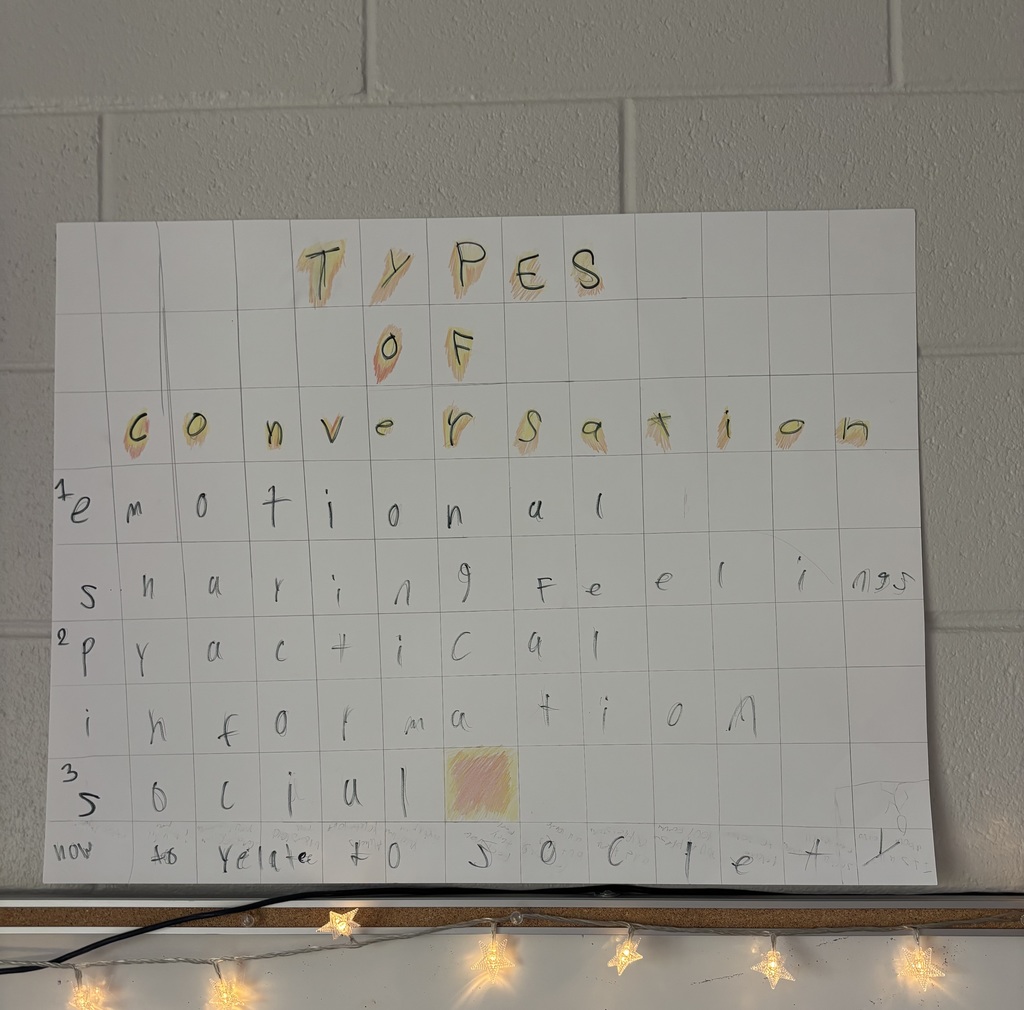 TYPES
OF
conversation
1 emotional
sharing Feelings
2 practical
information
3 social
how to relate to society